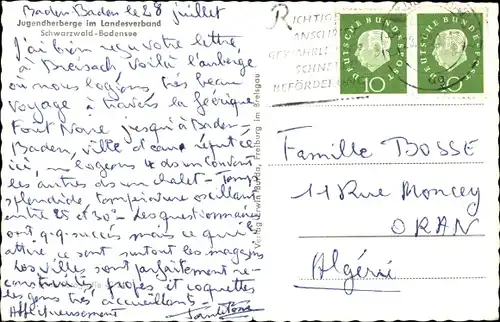 Baden Baden le 28 juillet
Jugendherberge im Landesverband
Schwarzwald-Bodensee
J'ai bien reçu votre lettre,
à Breisach voilà l'auberge
où nous logions très beau
voyage à travers la féerique
Forêt Noire jusqu'à Baden-
Baden, ville d'eau réputée
ici, logeons
les autres ds un chalet - Temps
splendide, température oscillant
entre 25 et 30° - Les questionnaires
ont q.q. succès mais ce qui
attire ce sont surtout les magasins
Les villes sont parfaitement re-
construites propres et coquettes
les gens très accueillants -
Affectueusement
Verlag Erwin Burda, Freiburg im Breisgau
RICHTIGE
ANSCHRIFT
SCHNELL
BEFÖRDERT
DEUTSCHE BUNDESPOST
10
DEUTSCHE BUNDESPOST
10
Famille BOSSE
11 Rue Moncey
ORAN
Algérie